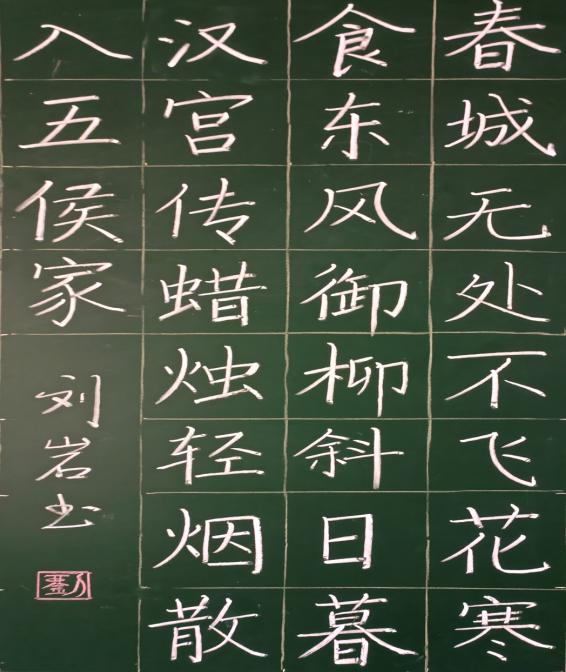 春城无处不飞花寒
食东风御柳斜日暮
汉宫传蜡烛轻烟散
入五侯家
刘岩书